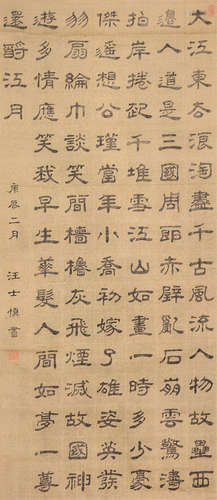 大江東去浪淘盡千古風流人物故壘西
邊人道是三國周郎赤壁亂石崩雲驚濤
拍岸捲起千堆雪江山如畫一時多少豪
傑遙想公瑾當年小喬初嫁了雄姿英發
羽扇綸巾談笑間檣櫓灰飛煙滅故國神
遊多情應笑我早生華髮人間如夢一尊
還酹江月
庚辰二月 汪士慎書